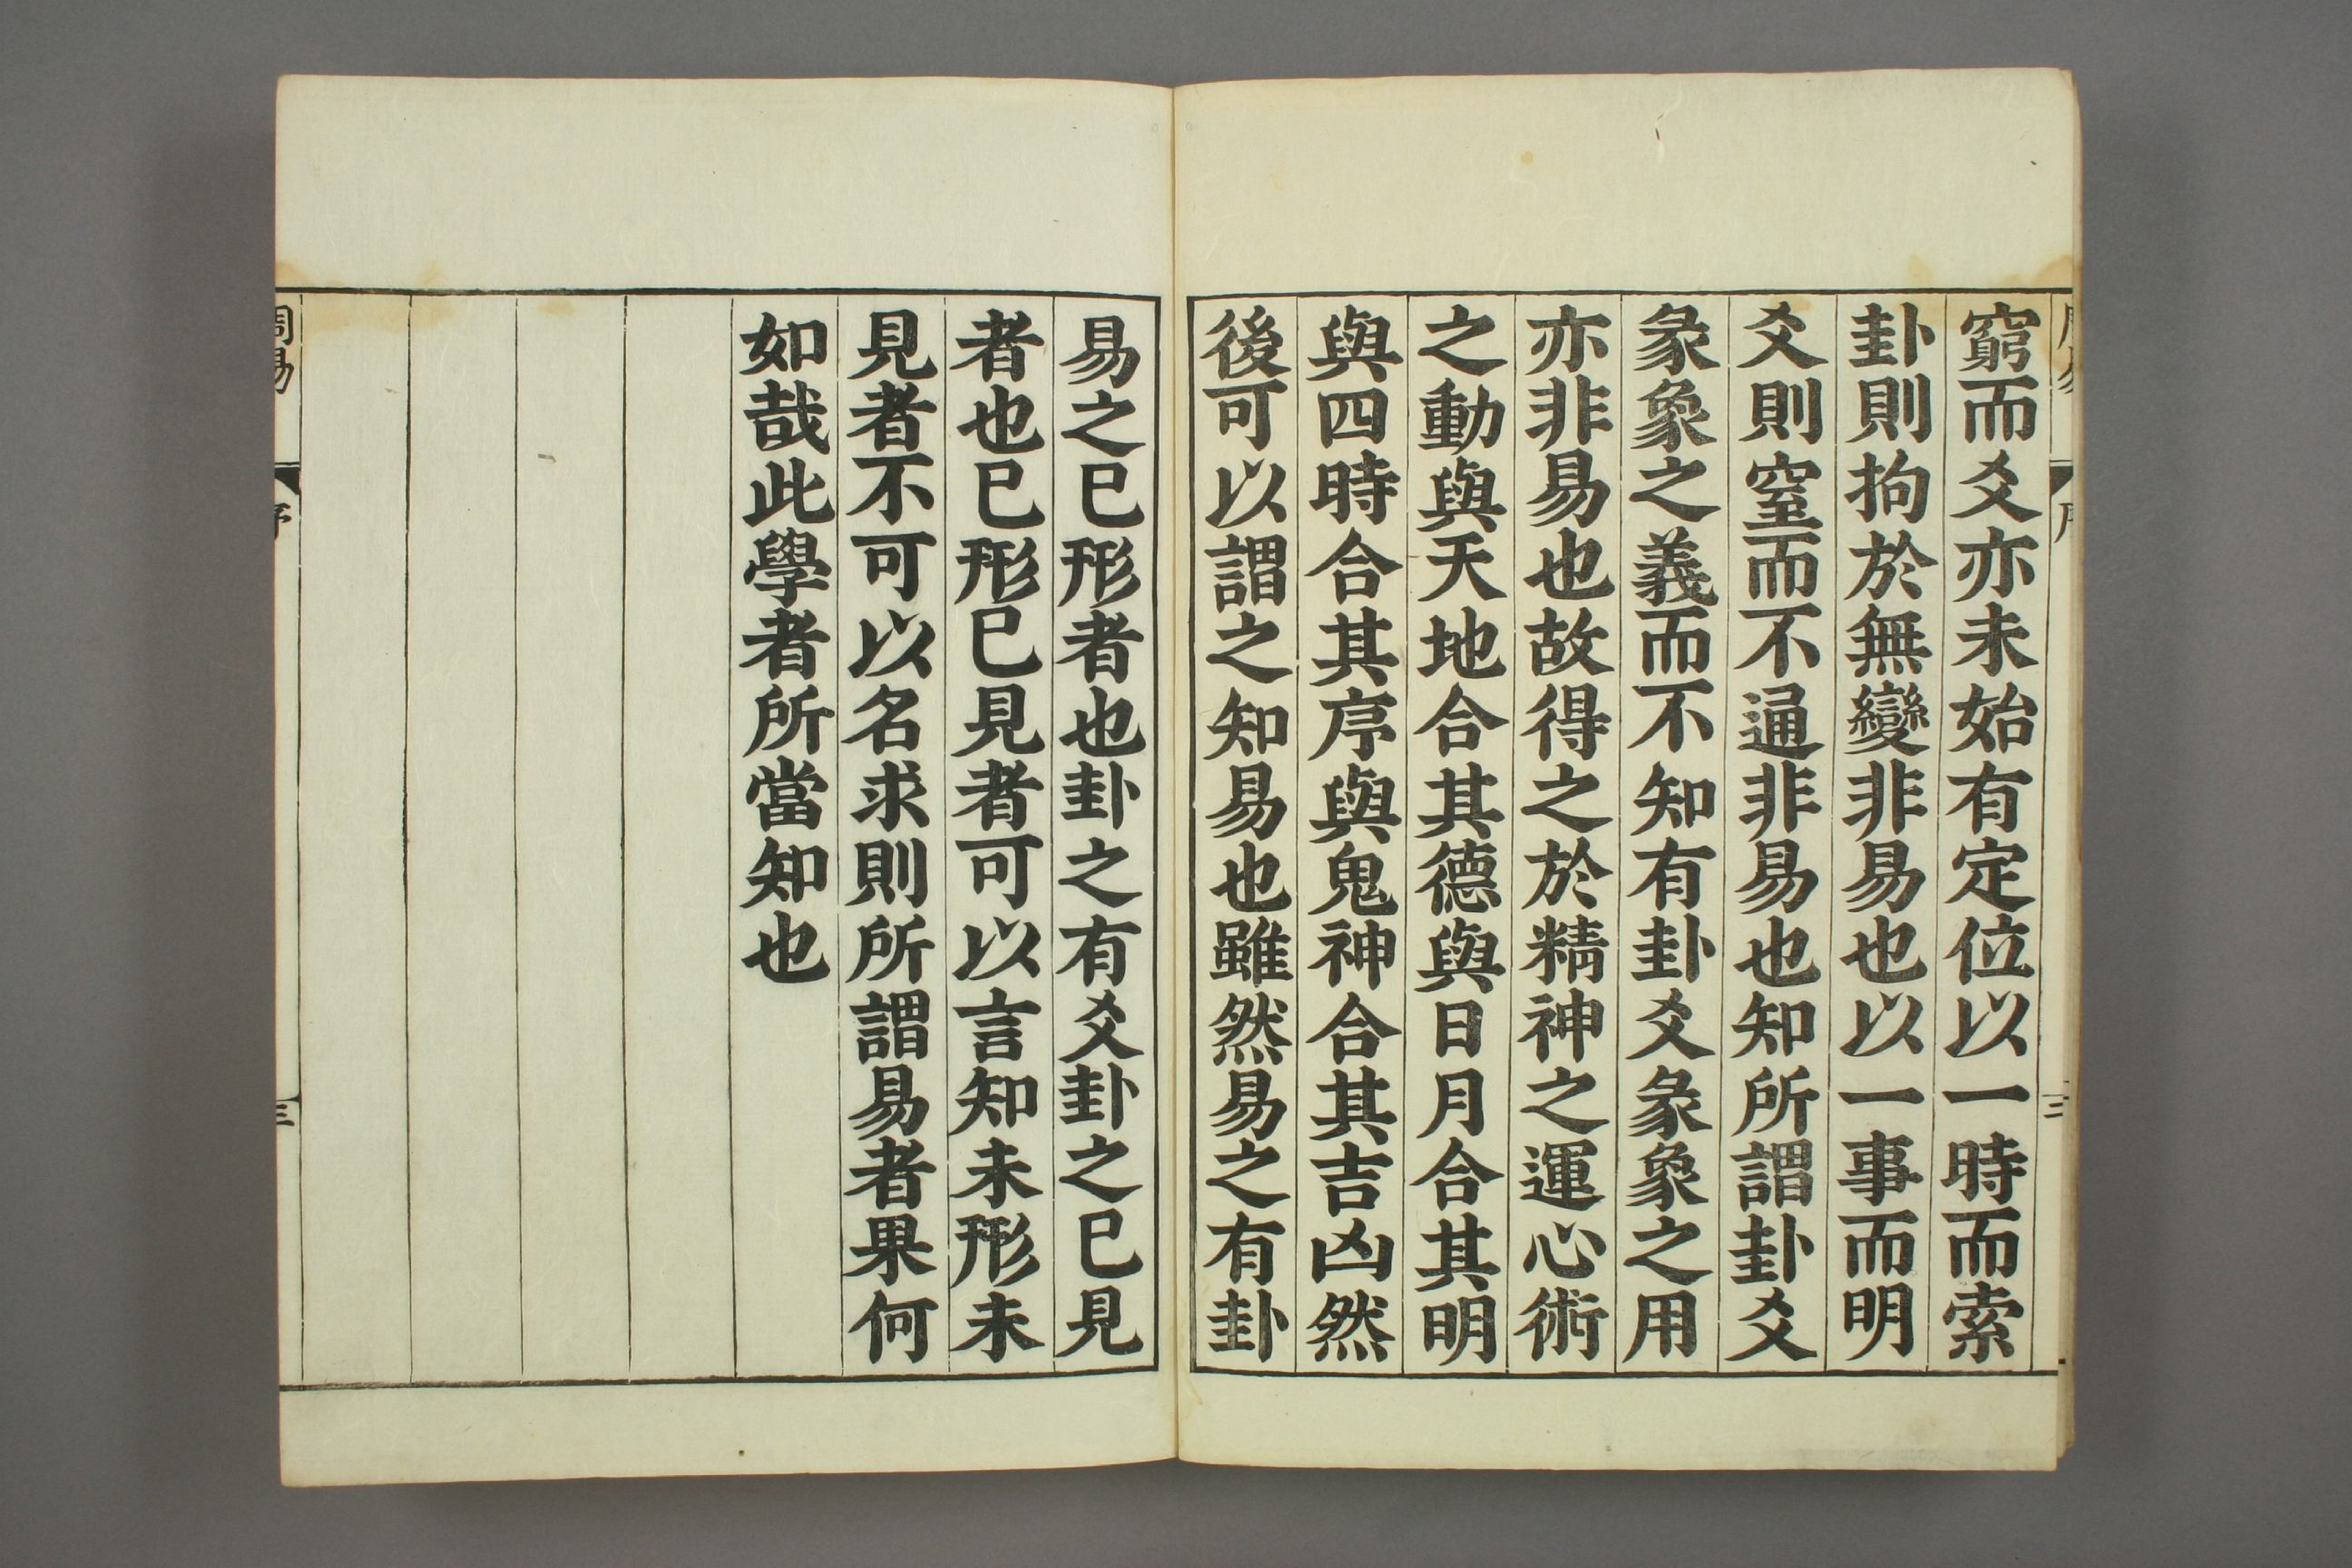 窮而爻亦未始有定位以一時而索
卦則拘於無變非易也以一事而明
爻則窒而不通非易也知所謂卦爻
彖象之義而不知有卦爻彖象之用
亦非易也故得之於精神之運心術
之動與天地合其德與日月合其明
與四時合其序與鬼神合其吉凶然
後可以謂之知易也雖然易之有卦
易之已形者也卦之有爻卦之已見
者也已形已見者可以言知未形未
見者不可以名求則所謂易者果何
如哉此學者所當知也
周易
序
三